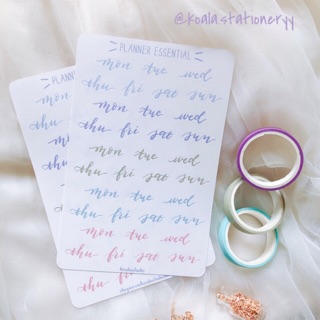 @koalastationeryy
PLANNER ESSENTIAL
mon tue wed
thu fri sat sun
mon tue wed
thu fri sat sun
mon tue wed
thu fri sat sun
mon tue wed
thu fri sat sun
mon tue wed
thu fri sat sun
PLANNER
mon
thu
mon
thu
thu fri